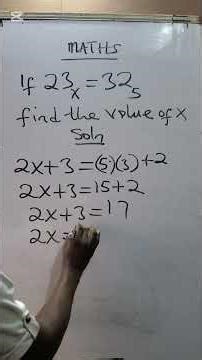 MATHS
If 23ₓ = 32₅
find the value of x
Soln
2x+3=(5)(3)+2
2x+3=15+2
2x+3=17
2x=